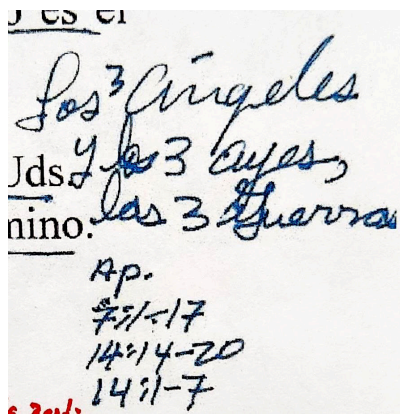 o es el
Los 3 Ángeles
Uds. y los 3 ayes,
mino. las 3 Guerras
Ap.
7:1-17
14:14-20
14:1-7